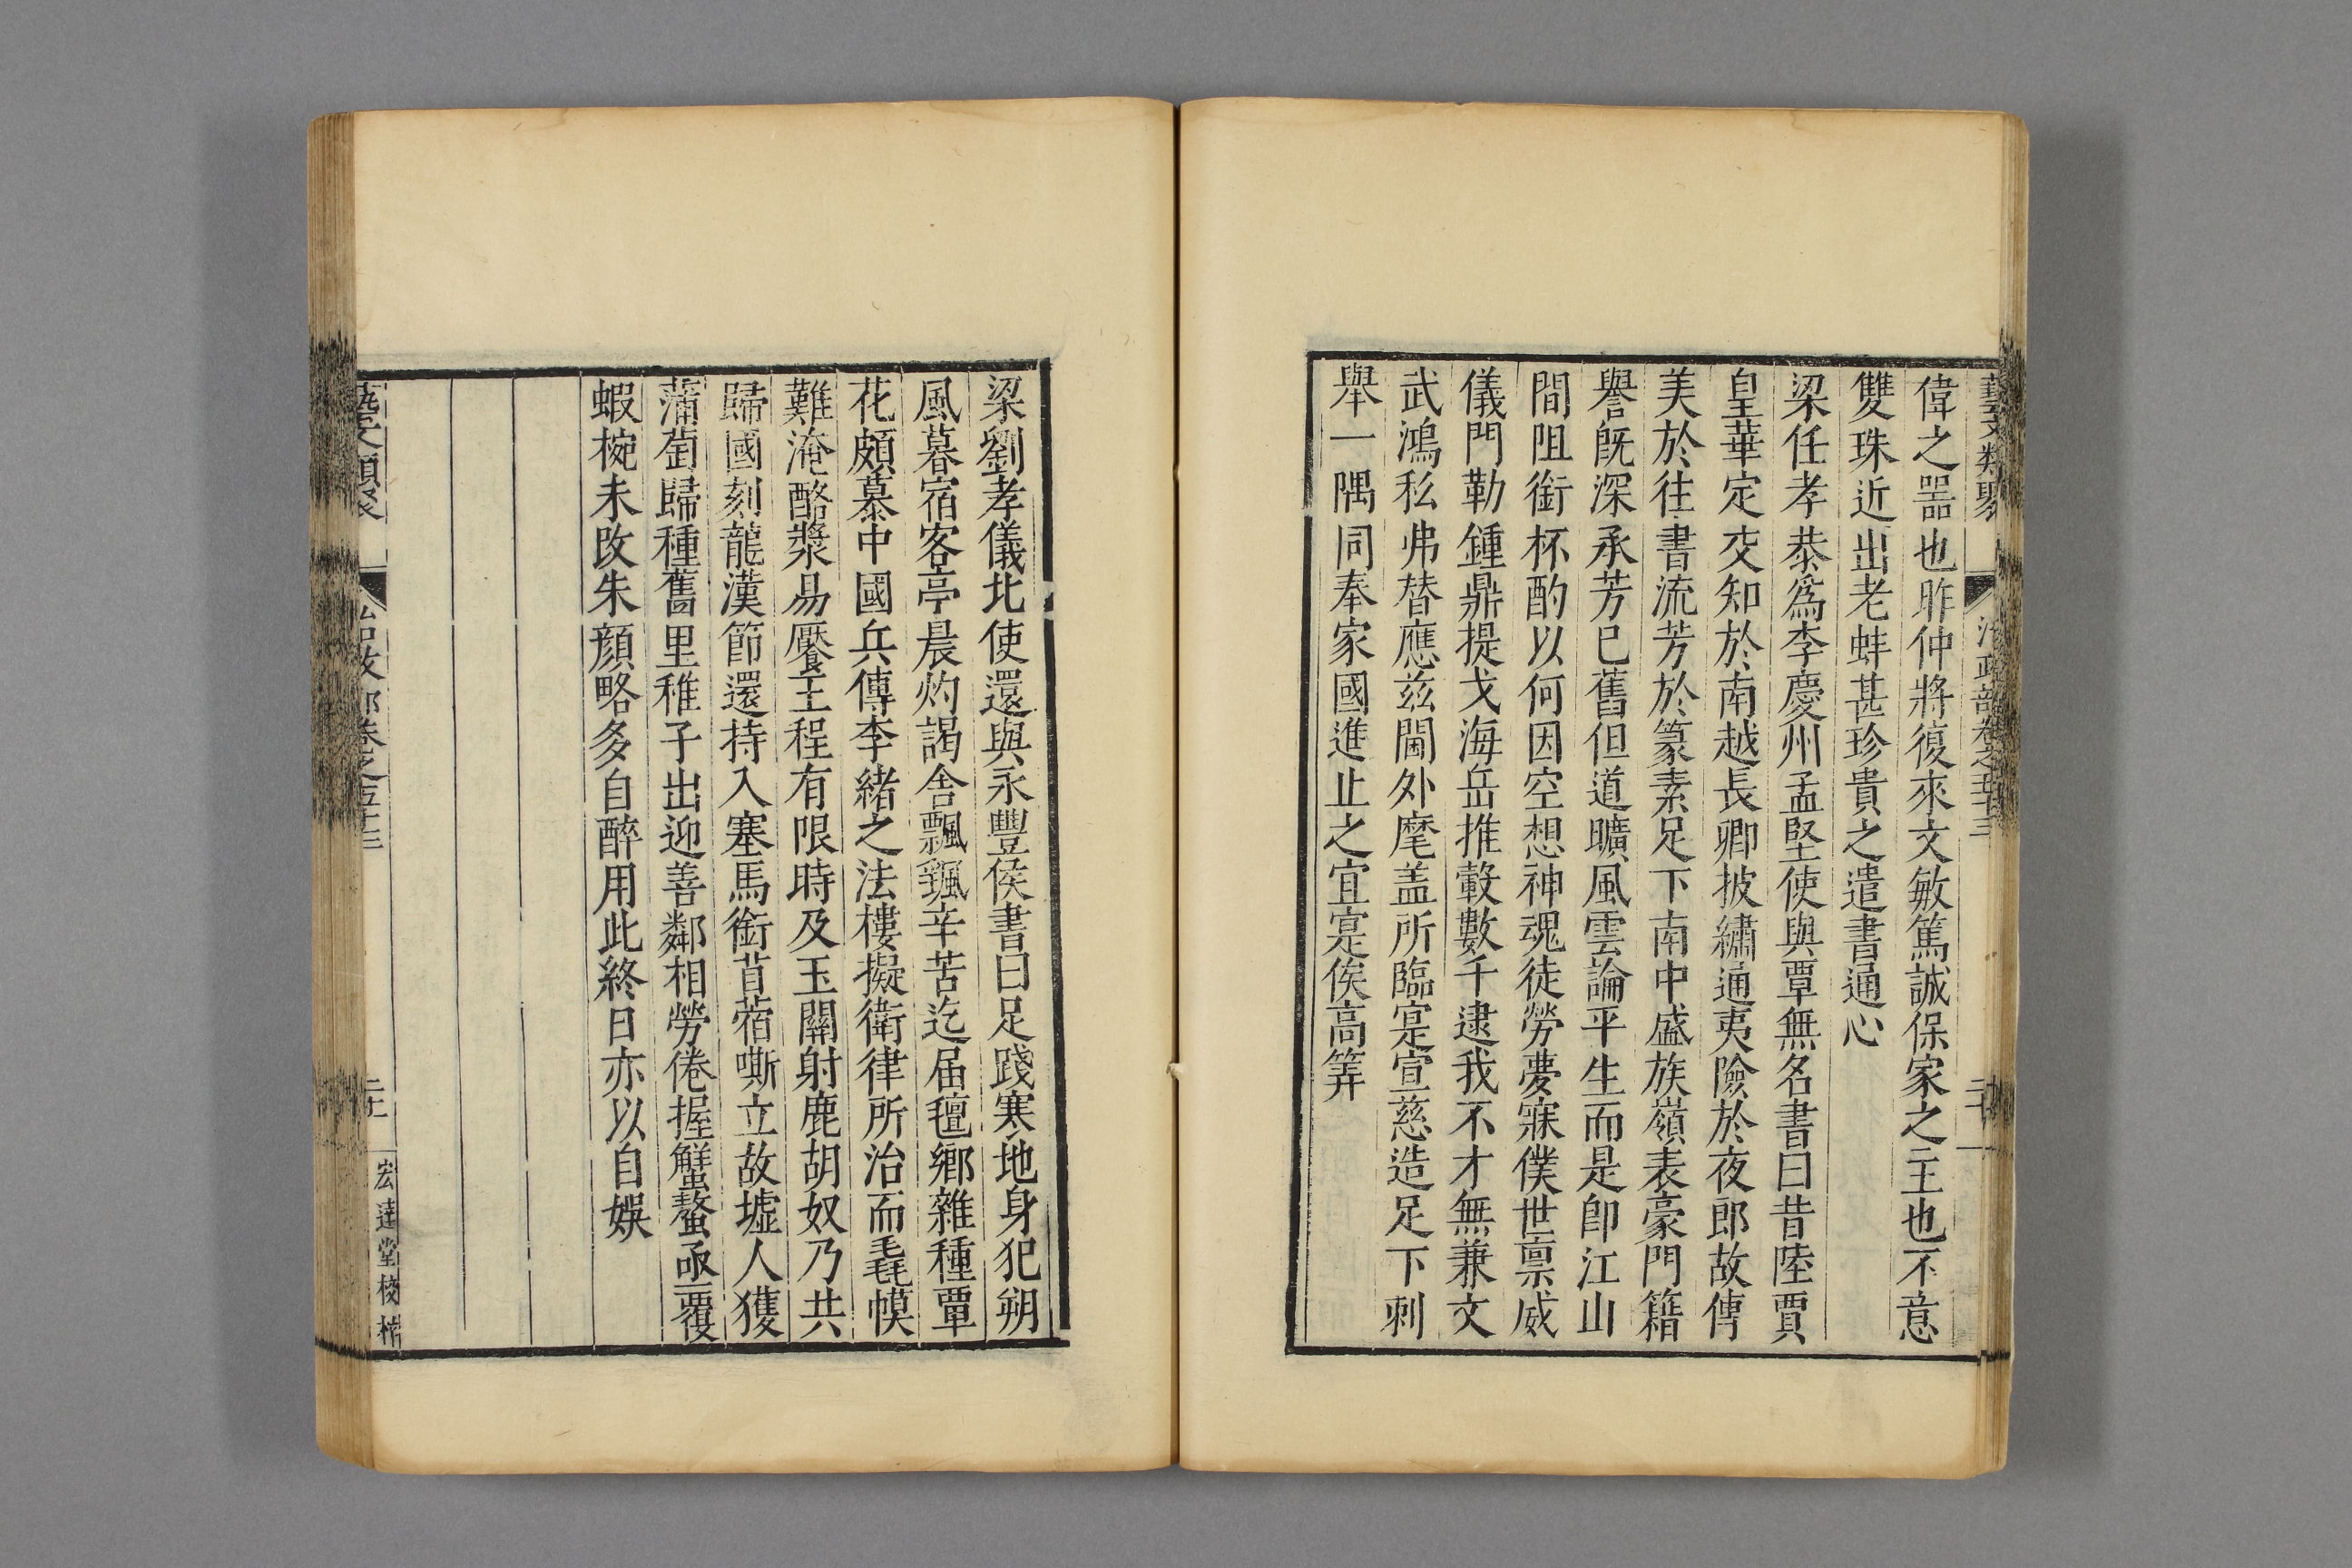 藝文類聚 治政部卷之五十三
偉之噐也昨仲將復來文敏篤誠保家之主也不意
雙珠近出老蚌甚珍貴之遣書通心
梁任孝恭爲李慶州孟堅使與覃無名書曰昔陸賈
皇華定交知於南越長卿披繡通夷險於夜郎故傳
美於往書流芳於篆素足下南中盛族嶺表豪門籍
譽旣深承芳巳舊但道曠風雲論平生而是卽江山
間阻銜杯酌以何因空想神魂徒勞夢寐僕世禀威
儀門勒鍾鼎提戈海岳推轂數千逮我不才無兼文
武鴻私弗替應兹閫外麾盖所臨寔宣慈造足下刺
舉一隅同奉家國進止之宜寔俟高筭
梁劉孝儀北使還與永豐侯書曰足踐寒地身犯朔
風暮宿客亭晨灼謁舍飄颻辛苦迄届氊鄉雜種覃
花頗慕中國兵傳李緒之法樓擬衛律所治而毳幙
難淹酪漿易饜王程有限時及玉關射鹿胡奴乃共
歸國刻龍漢節還持入塞馬銜苜蓿嘶立故墟人獲
蒲萄歸種舊里稚子出迎善鄰相勞倦握蟹螯亟覆
蝦椀未改朱顔略多自醉用此終日亦以自娛
藝文類聚 治政部卷之五十三 宏達堂校栞